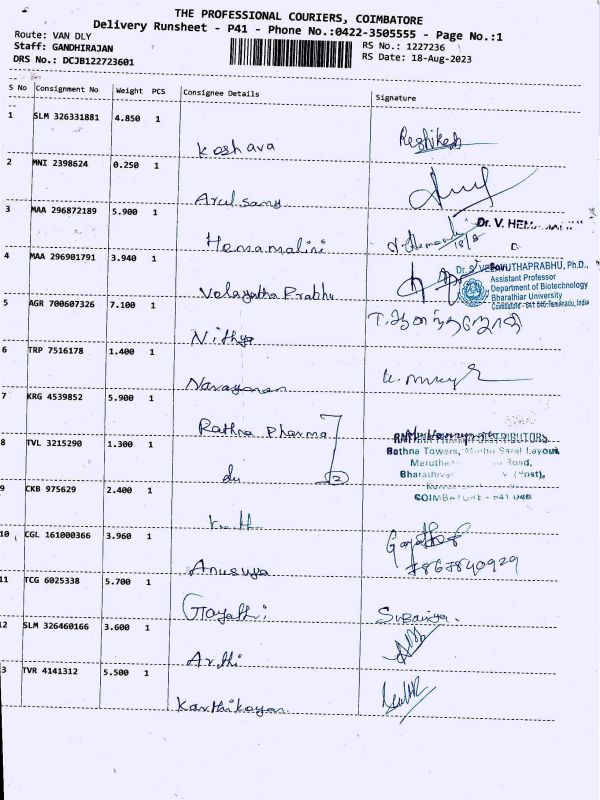 THE PROFESSIONAL COURIERS, COIMBATORE
Delivery Runsheet - P41 - Phone No.:0422-3505555 - Page No.:1
Route: VAN DLY
RS No.: 1227236
Staff: GANDHIRAJAN
RS Date: 18-Aug-2023
DRS No.: DCJB122723601
S No Consignment No Weight PCS Consignee Details Signature
1 SLM 326331881 4.850 1
Keshava
2 MNI 2398624 0.250 1
Arulsamy
3 MAA 296872189 5.900 1
Dr. V.
Hemamalini
18/8
4 MAA 296901791 3.940 1
Assistant Professor
Department of Biotechnology
Bharathiar University
Coimbatore - 641 046, Tamilnadu, India
Velayutha Prabhu
5 AGR 700607326 7.100 1
Nithya
6 TRP 7516178 1.400 1
Narayanan
7 KRG 4539852 5.900 1
Rathna Pharma
8 TVL 3215290 1.300 1
Rathna Towers, Layout,
Road,
(Post),
COIMBATORE - 641 046
du 2
9 CKB 975629 2.400 1
10 CGL 161000366 3.960 1
Anusuya
7867840929
11 TCG 6025338 5.700 1
Gayathri
12 SLM 326460166 3.600 1
Arthi
3 TVR 4141312 5.500 1
Karthikayan